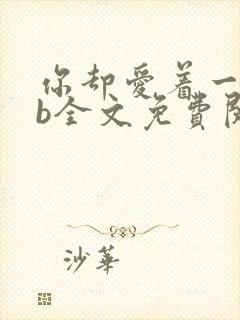 你却爱着一
b全文免費閱
沙華